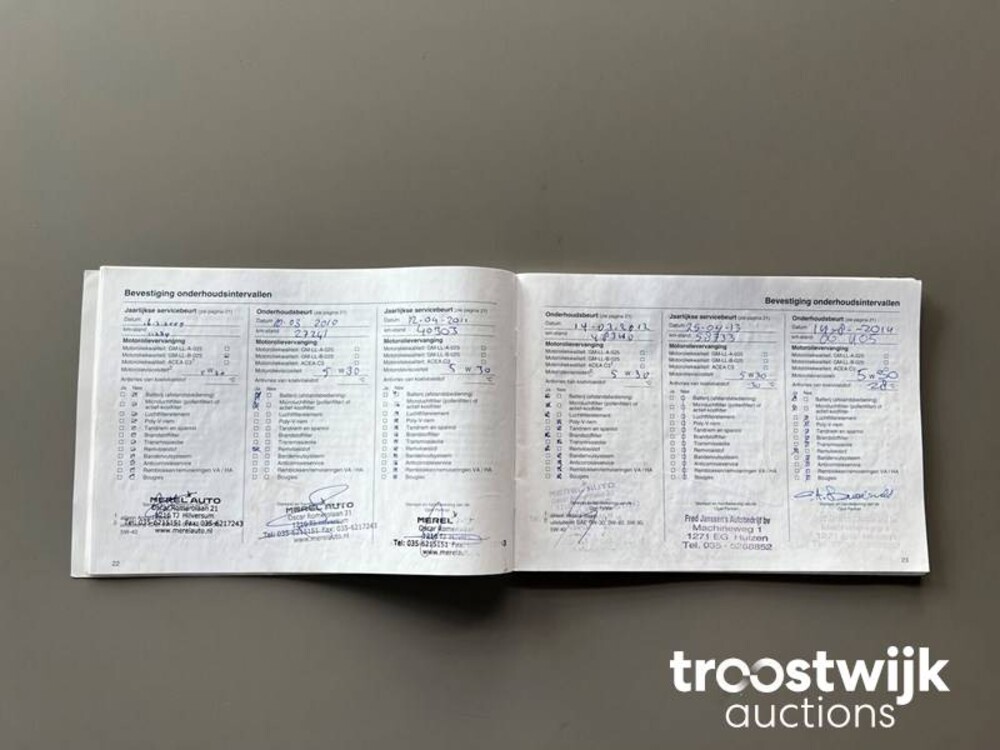 Bevestiging onderhoudsintervallen
Jaarlijkse servicebeurt (zie pagina 21)
Datum
km-stand
Motorolievervanging
Motoroliekwaliteit: GM-LL-A-025
Motoroliekwaliteit: GM-LL-B-025
Motoroliekwaliteit: ACEA C3
Motorolieviscositeit
Antivries van koelvloeistof °C
Ja Nee
Batterij (afstandsbediening)
Microluchtfilter (pollenfilter) of
actief-koolfilter
Luchtfilterelement
Poly-V-riem
Tandriem en spanrol
Brandstoffilter
Transmissieolie
Remvloeistof
Bandenvulsysteem
Anticorrosieservice
Remblokken/remvoeringen VA / HA
Bougies
MEREL AUTO
Oscar Romerolaan 21
1216 TJ Hilversum
Tel: 035-6215151 Fax: 035-6217243
www.merelauto.nl
22
Onderhoudsbeurt (zie pagina 21)
Datum 10-03 2010
km-stand 27241
Motorolievervanging
Motoroliekwaliteit: GM-LL-A-025
Motoroliekwaliteit: GM-LL-B-025
Motoroliekwaliteit: ACEA C3
Motorolieviscositeit 5 W 30
Antivries van koelvloeistof °C
Ja Nee
Batterij (afstandsbediening)
Microluchtfilter (pollenfilter) of
actief-koolfilter
Luchtfilterelement
Poly-V-riem
Tandriem en spanrol
Brandstoffilter
Transmissieolie
Remvloeistof
Bandenvulsysteem
Anticorrosieservice
Remblokken/remvoeringen VA / HA
Bougies
MEREL AUTO
Oscar Romerolaan 21
1216 TJ Hilversum
035-6215151 Fax: 035-6217243
www.merelauto.nl
Jaarlijkse servicebeurt (zie pagina 21)
Datum 12-04-2011
km-stand 40303
Motorolievervanging
Motoroliekwaliteit: GM-LL-A-025
Motoroliekwaliteit: GM-LL-B-025
Motoroliekwaliteit: ACEA C3
Motorolieviscositeit 5 W 30
Antivries van koelvloeistof °C
Ja Nee
Batterij (afstandsbediening)
Microluchtfilter (pollenfilter) of
actief-koolfilter
Luchtfilterelement
Poly-V-riem
Tandriem en spanrol
Brandstoffilter
Transmissieolie
Remvloeistof
Bandenvulsysteem
Anticorrosieservice
Remblokken/remvoeringen VA / HA
Bougies
MEREL
Oscar Romerolaan
1216 TJ
Tel: 035-6215151 Fax:
www.merelaut
Bevestiging onderhoudsintervallen
Onderhoudsbeurt (zie pagina 21)
Datum
km-stand
Motorolievervanging
Motoroliekwaliteit: GM-LL-A-025
Motoroliekwaliteit: GM-LL-B-025
Motoroliekwaliteit: ACEA C3
Motorolieviscositeit 5 W 30
Antivries van koelvloeistof °C
Ja Nee
Batterij (afstandsbediening)
Microluchtfilter (pollenfilter) of
actief-koolfilter
Luchtfilterelement
Poly-V-riem
Tandriem en spanrol
Brandstoffilter
Transmissieolie
Remvloeistof
Bandenvulsysteem
Anticorrosieservice
Remblokken/remvoeringen VA / HA
Bougies
Jaarlijkse servicebeurt (zie pagina 21)
Datum 25-04-13
km-stand 53733
Motorolievervanging
Motoroliekwaliteit: GM-LL-A-025
Motoroliekwaliteit: GM-LL-B-025
Motoroliekwaliteit: ACEA C3
Motorolieviscositeit 5W30
Antivries van koelvloeistof 30 °C
Ja Nee
Batterij (afstandsbediening)
Microluchtfilter (pollenfilter) of
actief-koolfilter
Luchtfilterelement
Poly-V-riem
Tandriem en spanrol
Brandstoffilter
Transmissieolie
Remvloeistof
Bandenvulsysteem
Anticorrosieservice
Remblokken/remvoeringen VA / HA
Bougies
Fred Janssen's Autobedrijf bv
Machineweg 1
1271 EG Huizen
Tel. 035 - 5268852
Onderhoudsbeurt (zie pagina 21)
Datum
km-stand
Motorolievervanging
Motoroliekwaliteit: GM-LL-A-025
Motoroliekwaliteit: GM-LL-B-025
Motoroliekwaliteit: ACEA C3
Motorolieviscositeit
Antivries van koelvloeistof
Ja Nee
Batterij (afstandsbediening)
Microluchtfilter (pollenfilter) of
actief-koolfilter
Luchtfilterelement
Poly-V-riem
Tandriem en spanrol
Brandstoffilter
Transmissieolie
Remvloeistof
Bandenvulsysteem
Anticorrosieservice
Remblokken/remvoeringen VA / HA
Bougies
23
troostwijk
auctions